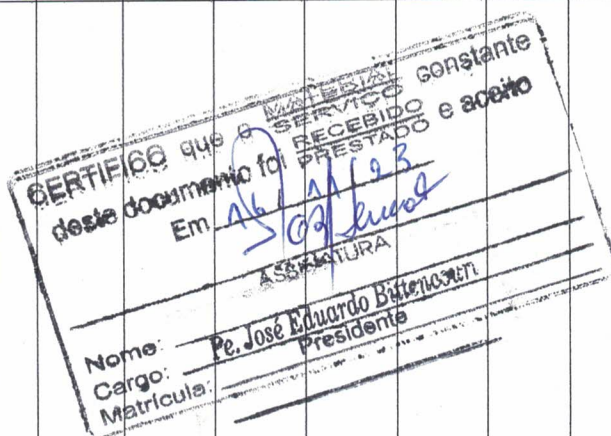 CERTIFICO que o MATERIAL SERVIÇO constante
deste documento foi RECEBIDO PRESTADO e aceito
Em 16/11/23
ASSINATURA
Nome: Pe. José Eduardo Bittencourt
Cargo: Presidente
Matrícula: